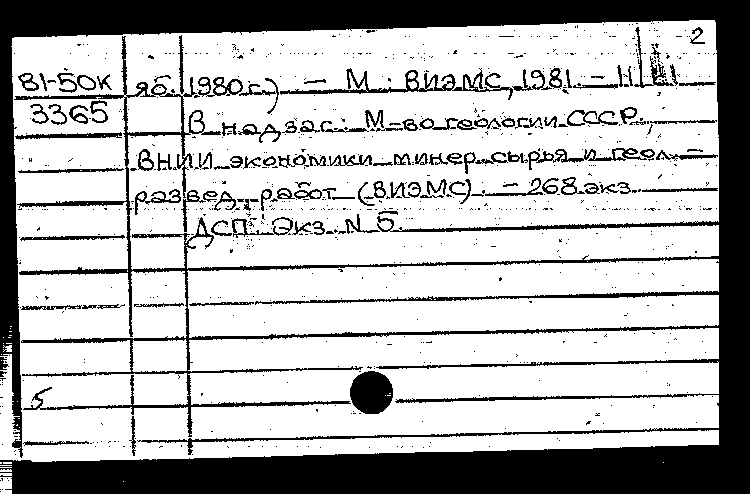 2
81-50К яб. 1980 г.) – М.: ВИЭМС, 1981. –
3365 В надзаг.: М-во геологии СССР,
ВНИИ экономики минер. сырья и геол. –
развед. работ (ВИЭМС). – 268 экз.
ДСП. Экз. N 5.
5